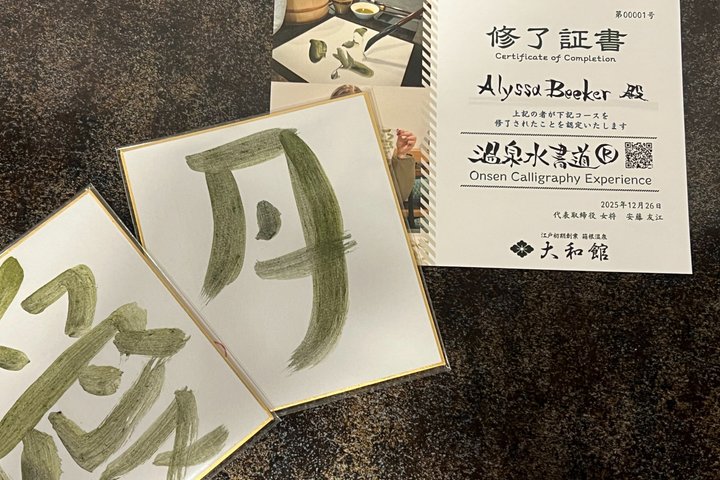 月
第00001号
修了証書
Certificate of Completion
Alyssa Beeker 殿
上記の者が下記コースを
修了されたことを認定いたします
温泉水書道®
Onsen Calligraphy Experience
2025年12月26日
代表取締役 女将 安藤 友江
江戸初期創業 箱根温泉
大和館